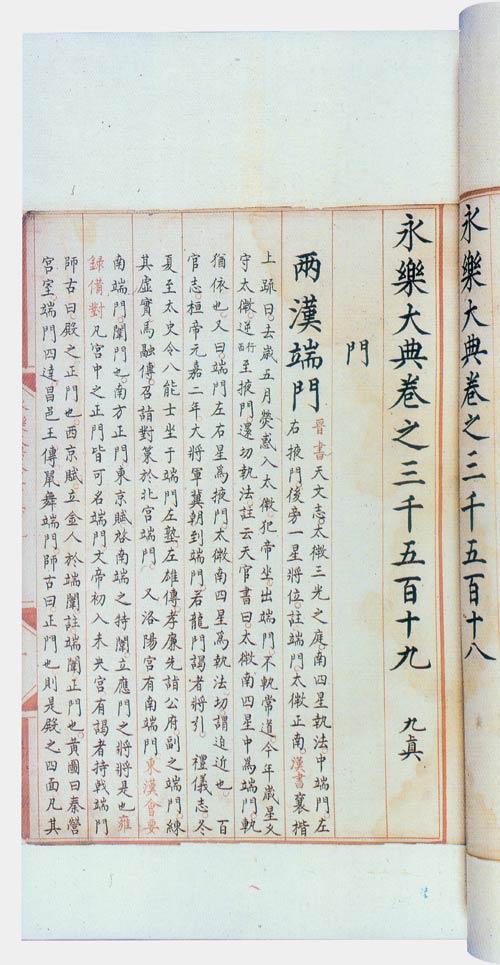 永樂大典卷之三千五百十八
永樂大典卷之三千五百十九 九真
門
兩漢端門
晉書天文志太微三光之庭南四星執法中端門左
右掖門後旁一星將位註端門太微正南漢書襄楷
上疏曰去歲五月熒惑入太微犯帝坐出端門不軌常道今年歲星乆
守太微逆行西至掖門還切執法註云天官書曰太微南四星中為端門軌
猶依也又曰端門左右星為掖門太微南四星為執法切謂迫近也 百
官志桓帝元嘉二年大將軍冀朝到端門若龍門謁者將引 禮儀志冬
夏至太史令八能士坐于端門左塾左雄傳孝廉先詣公府副之端門練
其虛實馬融傳召詣對策於北宮端門 又洛陽宮有南端門東漢會要
南端門闈門也南方正門東京賦啓南端之特闈立應門之將將是也雍
錄備對凡宮中之正門皆可名端門文帝初入未央宮有謁者持戟端門
師古曰殿之正門也西京賦立金人於端闈註端闈正門也黃圖曰秦營
宮室端門四達昌邑王傳舞端門師古曰正門也則是殿之四面凡其